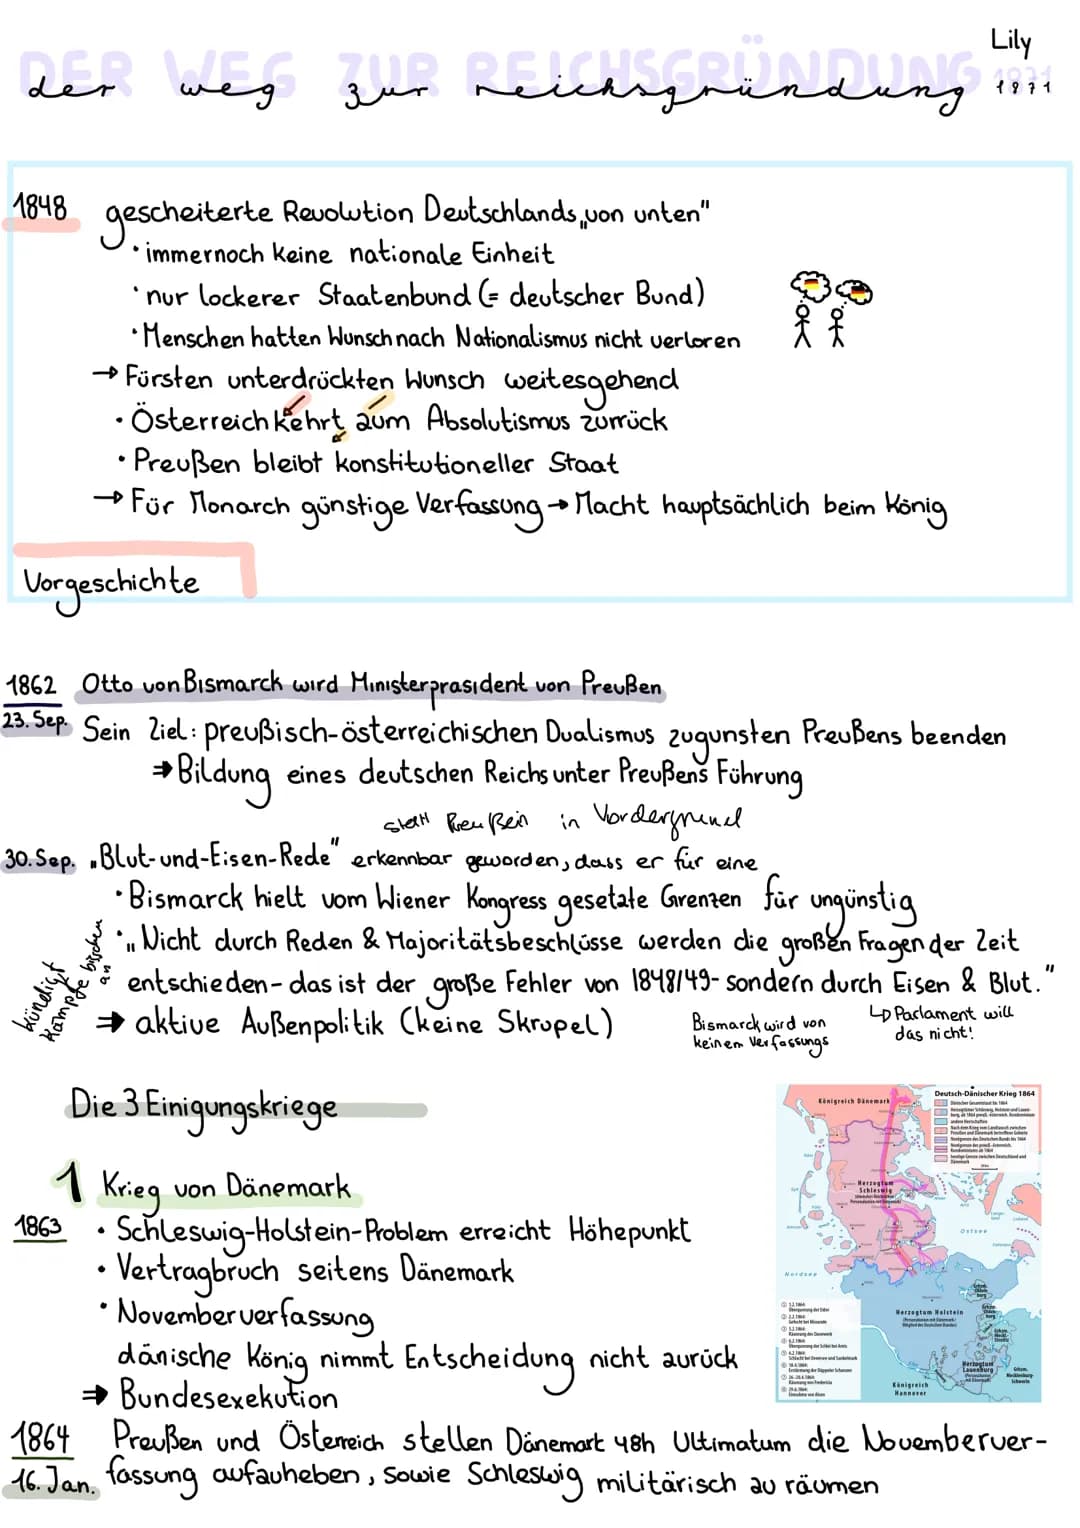 Lily
DER WEG ZUR REICHSGRÜNDUNG 1871
der weg zur reichsgründung 1871
1848 gescheiterte Revolution Deutschlands „von unten"
• immernoch keine nationale Einheit
• nur lockerer Staatenbund (= deutscher Bund)
• Menschen hatten Wunsch nach Nationalismus nicht verloren
→ Fürsten unterdrückten Wunsch weitesgehend
• Österreich kehrt zum Absolutismus zurrück
• Preußen bleibt konstitutioneller Staat
→ Für Monarch günstige Verfassung → Macht hauptsächlich beim König
Vorgeschichte
1862 Otto von Bismarck wird Ministerpräsident von Preußen
23. Sep. Sein Ziel: preußisch-österreichischen Dualismus zugunsten Preußens beenden
⇒ Bildung eines deutschen Reichs unter Preußens Führung
statt Preußein in Vordergrund
30. Sep. „Blut-und-Eisen-Rede" erkennbar geworden, dass er für eine
• Bismarck hielt vom Wiener Kongress gesetzte Grenzen für ungünstig
• „Nicht durch Reden & Majoritätsbeschlüsse werden die großen Fragen der Zeit
entschieden - das ist der große Fehler von 1848/49 - sondern durch Eisen & Blut."
kündigt Kämpfe bisschen an
⇒ aktive Außenpolitik (keine Skrupel)
Bismarck wird von
keinem Verfassungs
↳ Parlament will
das nicht!
Die 3 Einigungskriege
1 Krieg von Dänemark
1863 • Schleswig-Holstein-Problem erreicht Höhepunkt
• Vertragbruch seitens Dänemark
• Novemberverfassung
dänische König nimmt Entscheidung nicht zurück
⇒ Bundesexekution
Deutsch-Dänischer Krieg 1864
Königreich Dänemark
Herzogtum
Schleswig
Nordsee
Ostsee
Herzogtum Holstein
Herzogtum
Lauenburg
Königreich
Hannover
1864 Preußen und Österreich stellen Dänemark 48h Ultimatum die Novemberver-
16. Jan. fassung aufzuheben, sowie Schleswig militärisch zu räumen